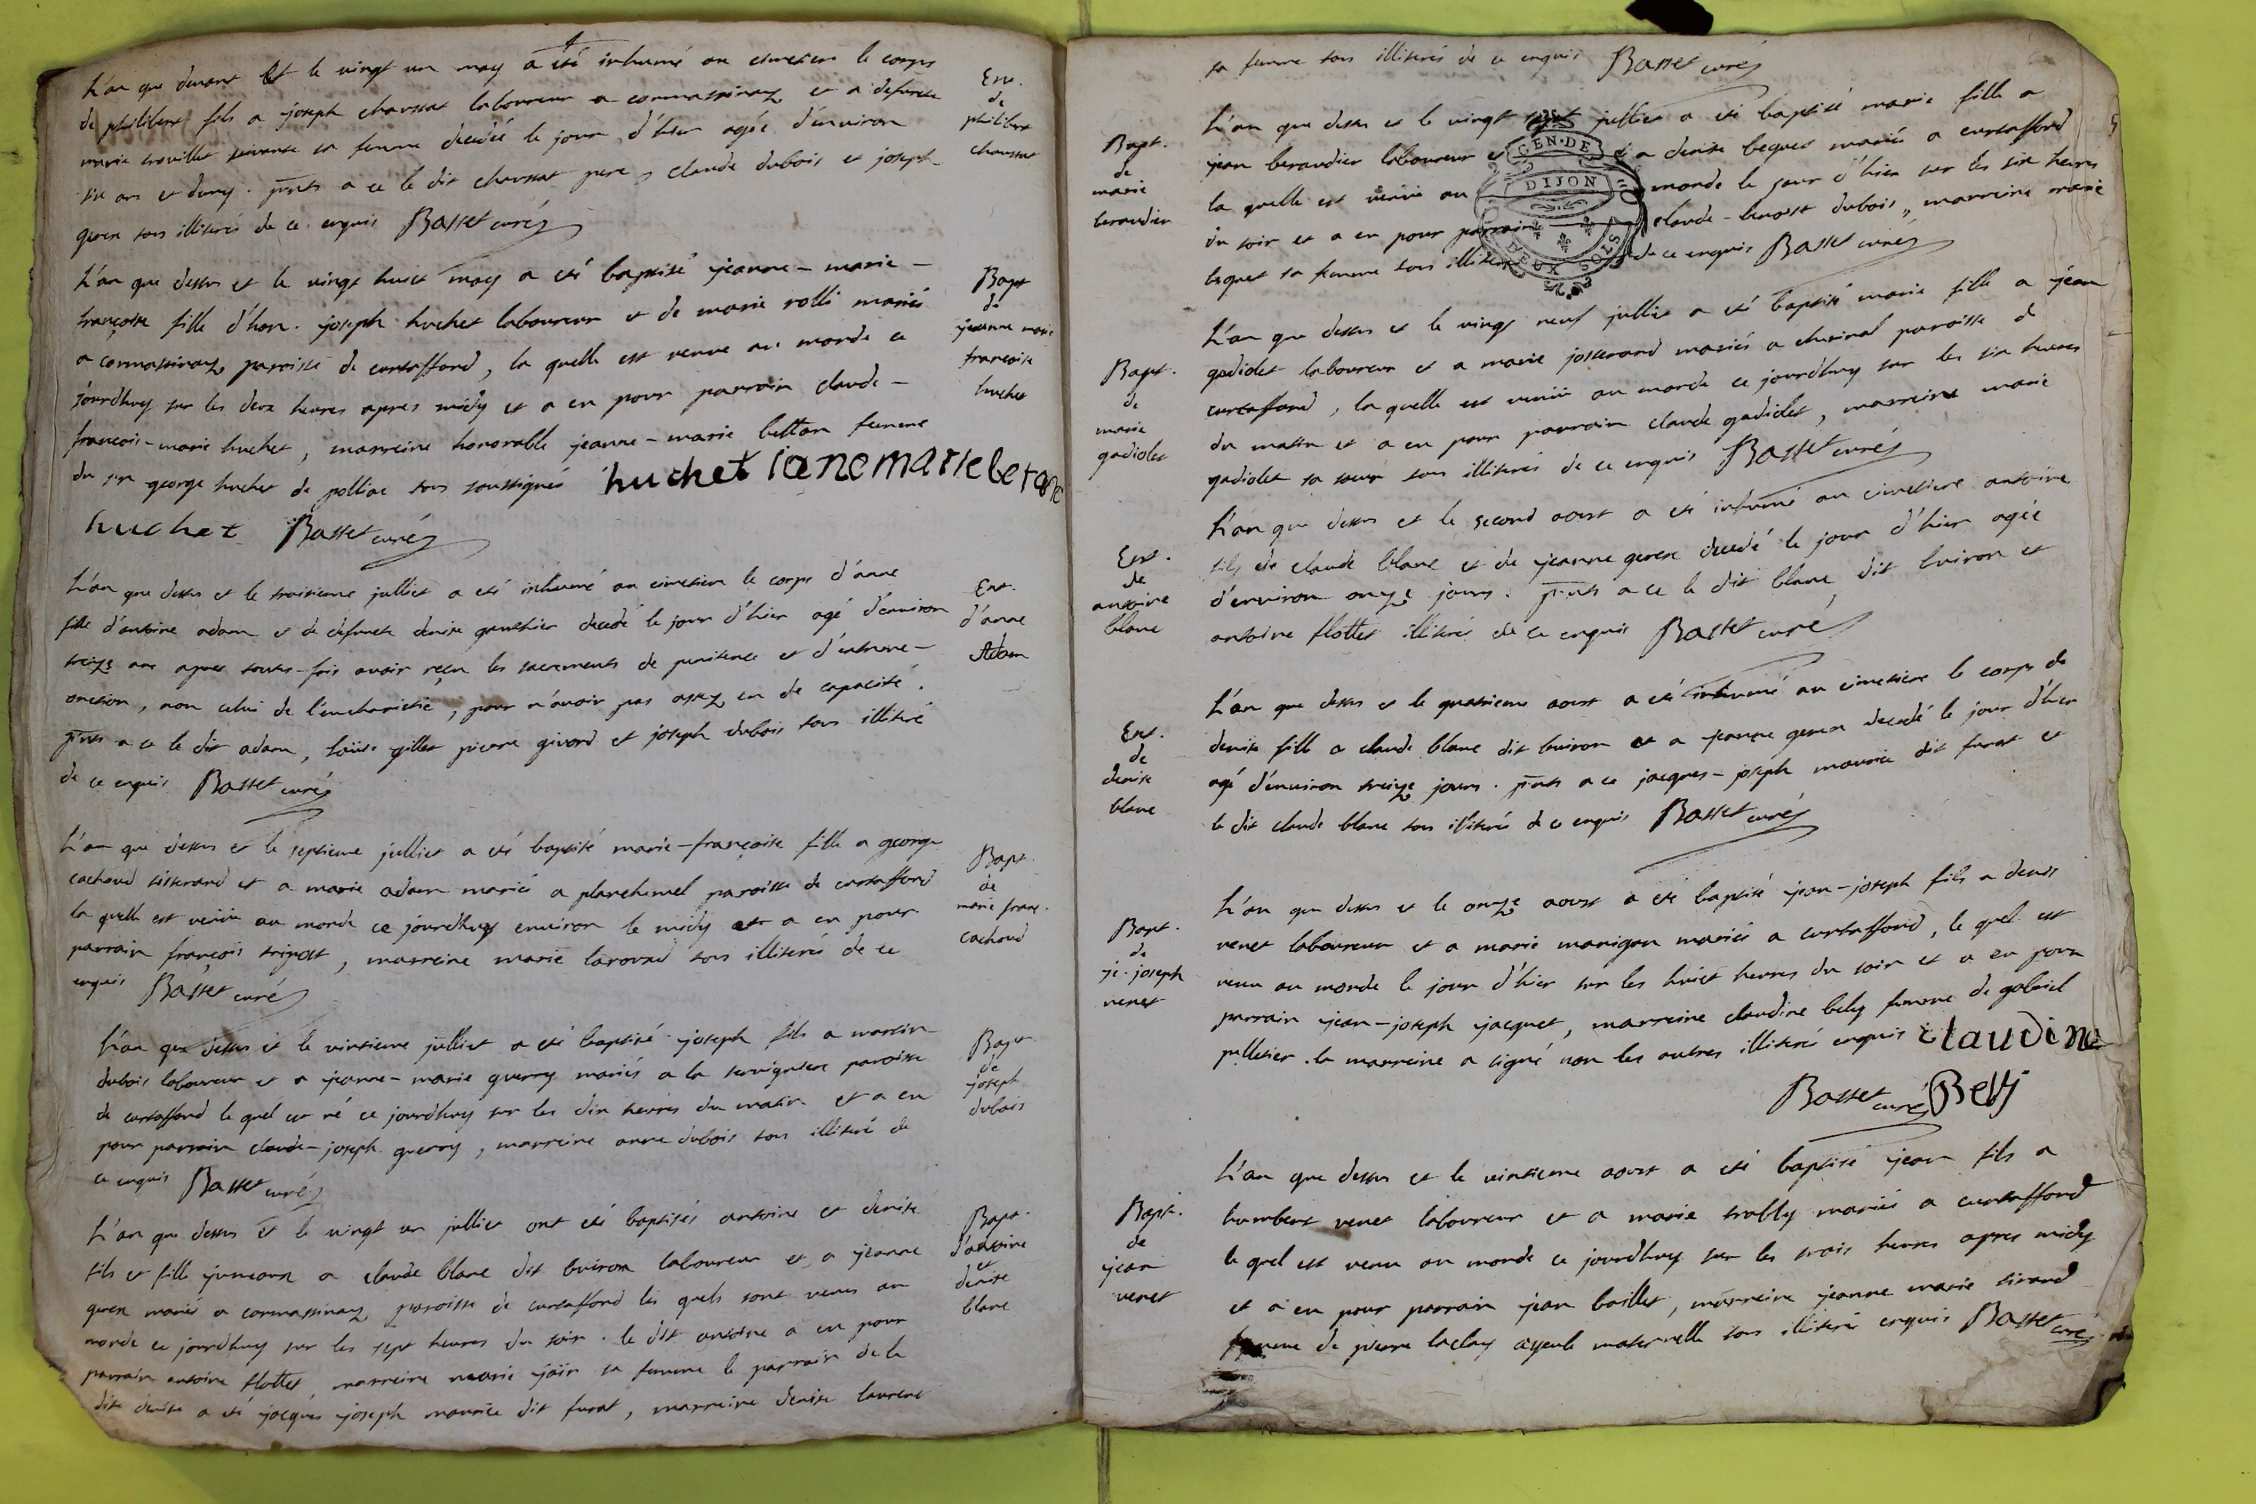 L'an que devant et le vingt un may a été inhumé au cimetiere le corps
de philibert fils a joseph chaussat laboureur a cormassinaz et a defuncte
marie trouillet vivante sa femme decedé le jour d'hier agée d'environ
six ans et demy. pnts a ce le dit chaussat pere, claude dubois et joseph
gerex tous illiterés de ce enquis Basset curé
Ent.
de
philibert
chaussat
L'an que dessus et le vingt huict may a été baptisé jeanne-marie-
françoise fille d'hon. joseph huchet laboureur et de marie rolli mariés
a cormassinaz paroisse de curtaffond, la quelle est venue au monde ce
jourdhuy sur les deux heures apres midy et a eu pour parrain claude-
francois-marie huchet, marreine honorable jeanne-marie bettan femme
du sr george huchet de polliac tous soussignés huchet iane marie betane
huchet Basset curé
Bapt
de
jeanne marie
francoise
huchet
L'an que dessus et le troisieme julliet a été inhumé au cimetiere le corps d'anne
fille d'antoine adam et de defuncte denise gauthier decedé le jour d'hier agé d'environ
treize ans apres toutes-fois avoir reçu les sacrements de penitence et d'extreme-
onction, non celui de l'eucharistie, pour n'avoir pas assez eu de capacité.
pnts a ce le dit adam, loüis gillet pierre givord et joseph dubois tous illiteré
de ce enquis Basset curé
Ent.
d'anne
Adam
L'an que dessus et le septieme julliet a été baptisé marie-françoise fille a george
cachoud tisserand et a marie adam mariés a planchemel paroisse de curtaffond
la quelle est venüe au monde ce jourdhuy environ le midy et a eu pour
parrain françois tripost, marreine marie larovad tous illiterés de ce
enquis Basset curé
Bapt.
de
marie franç.
cachoud
L'an que dessus et le vintieme julliet a été baptisé joseph fils a martin
dubois laboureur et a jeanne-marie guerry mariés a la servignatere paroisse
de curtaffond le quel est né ce jourdhuy sur les dix heures du matin et a eu
pour parrain claude-joseph guerry, marreine anne dubois tous illiteré de
ce enquis Basset curé
Bapt
de
joseph
dubois
L'an que dessus et le vingt un julliet ont été baptisés antoine et denise
fils et fille jumeaux a claude blanc dit buiron laboureur et a jeanne
gerex mariés a cormassinaz paroisse de curtaffond les quels sont venus au
monde ce jourdhuy sur les sept heures du soir. le dit antoine a eu pour
parrain antoine flottet, marreine marie join sa femme le parrain de la
dite denise a été jacques joseph maurice dit furat, marreine denise laurent
Bapt.
d'antoine
et
denise
blanc
sa femme tous illiterés de ce enquis Basset curé
L'an que dessus et le vingt sept julliet a été baptisé marie fille a
jean beraudier laboureur et a denise bequet mariés a curtaffond
la quelle est venüe au monde le jour d'hier sur les six heures
du soir et a eu pour parrain claude-benoist dubois, marreine marie
bequet sa femme tous illiterés de ce enquis Basset curé
GEN·DE
DIJON
DEUX SOLS
Bapt.
de
marie
beraudier
L'an que dessus et le vingt neuf julliet a été baptisé marie fille a jean
gadiolet laboureur et a marie josserand mariés a cherinal paroisse de
curtaffond, la quelle est venüe au monde ce jourdhuy sur les six heures
du matin et a eu pour parrain claude gadiolet, marreine marie
gadiolet sa soeur tous illiterés de ce enquis Basset curé
Bapt.
de
marie
gadiolet
L'an que dessus et le second aoust a été inhumé au cimetiere antoine
fils de claude blanc et de jeanne gerex decedé le jour d'hier agée
d'environ onze jours. pnts a ce le dit blanc dit buiron et
antoine flottet illiterés de ce enquis Basset curé
Ent.
de
antoine
blanc
L'an que dessus et le quatrieme aoust a été inhumé au cimetiere le corps de
denise fille a claude blanc dit buiron et a jeanne gerex decedé le jour d'hier
agé d'environ treize jours. pnts a ce jacques-joseph maurice dit furat et
le dit claude blanc tous illiterés de ce enquis Basset curé
Ent.
de
denise
blanc
L'an que dessus et le onze aoust a été baptisé jean-joseph fils a denis
venet laboureur et a marie manigan mariés a curtaffond, le quel est
venu au monde le jour d'hier sur les huict heures du soir et a eu pour
parrain jean-joseph jacquet, marreine claudine bely femme de gabriel
pelletier. la marreine a signé non les autres illiteré enquis claudine
Basset curé Bely
Bapt.
de
je-joseph
venet
L'an que dessus et le vintieme aoust a été baptisé jean fils a
humbert venet laboureur et a marie trably mariés a curtaffond
le quel est venu au monde ce jourdhuy sur les trois heures apres midy
et a eu pour parrain jean baillet, marreine jeanne marie sirand
femme de pierre laclay ayeule maternelle tous illiteré enquis Basset curé
Bapt.
de
jean
venet